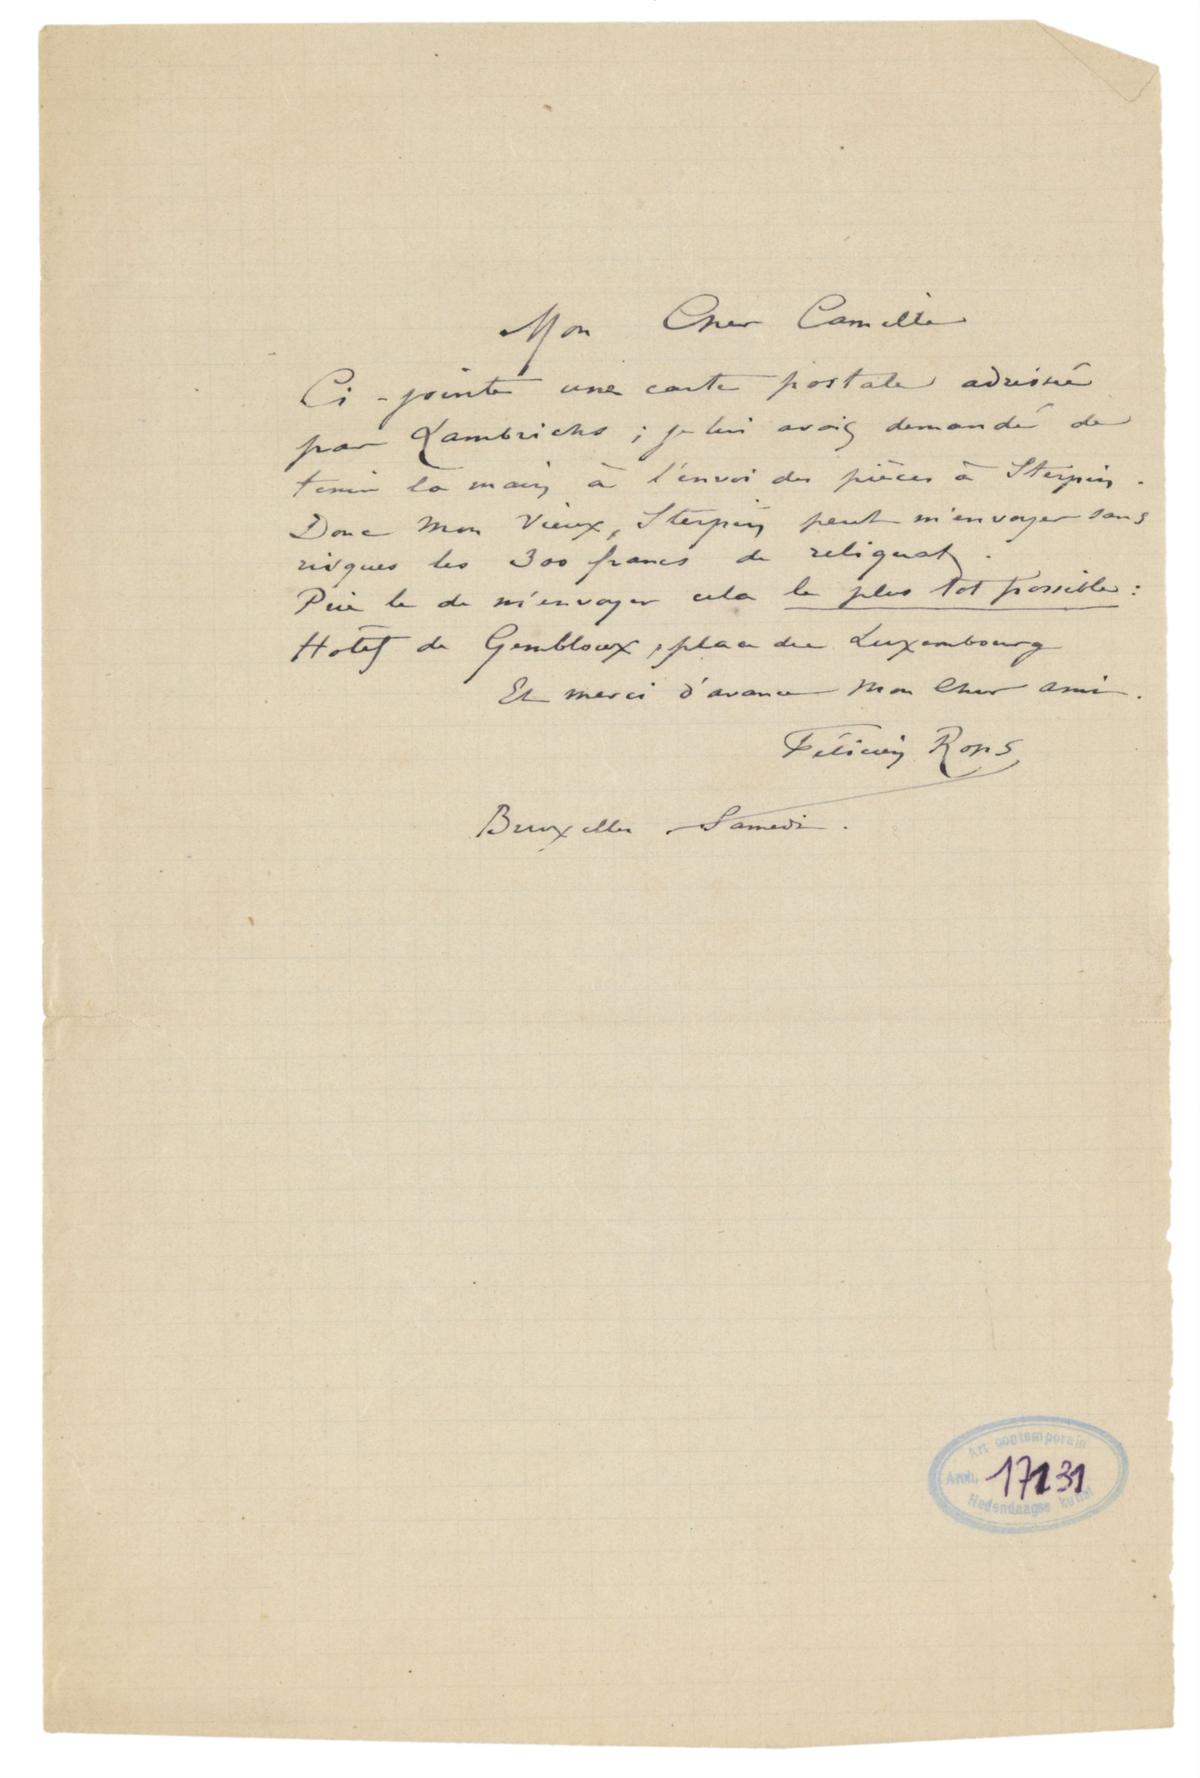 Mon Cher Camille
Ci-jointe une carte postale adressée
par Lambrichs ; je lui avais demandé de
tenir la main à l'envoi des pièces à Sterpin.
Donc Mon Vieux, Sterpin peut m'envoyer sans
risques les 300 francs de reliquat.
Prie le de m'envoyer cela le plus tot possible :
Hotel de Gembloux, place du Luxembourg
Et merci d'avance Mon Cher ami.
Félicien Rops
Bruxelles, Samedi.
Art contemporain
Arch. 17131
Hedendaagse kunst